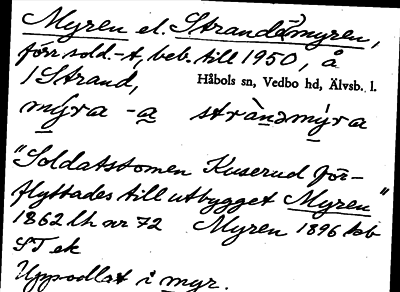 Myren el. Strandåmyren,
förr sold.-t, beb. till 1950, å
1 Strand, Håbols sn, Vedbo hd, Älvsb. l.
mýra -a stràndmýra
"Soldatstomen Kuserud för-
flyttades till utbygget Myren"
1862 lh nr 72 Myren 1896 kb
ST ek
Uppodlat i myr.